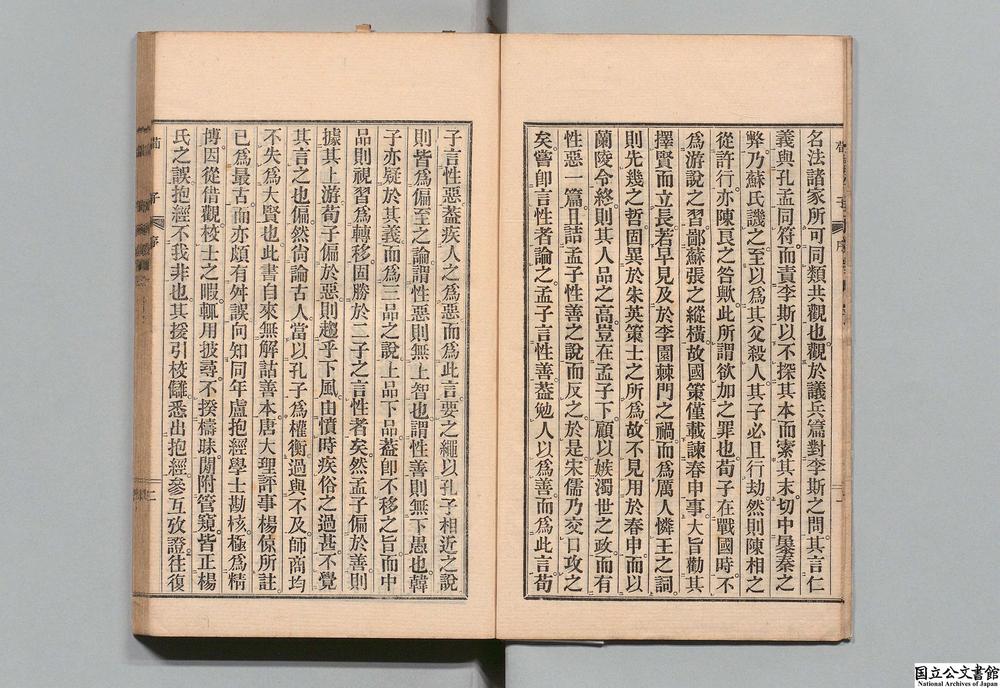 名法諸家所可同類共觀也。觀於議兵篇對李斯之問。其言仁
義與孔孟同符。而責李斯以不探其本而索其末。切中暴秦之
弊。乃蘇氏譏之。至以爲其父殺人。其子必且行劫。然則陳相之
從許行。亦陳良之咎歟。此所謂欲加之罪也。荀子在戰國時。不
爲游說之習。鄙蘇張之縱橫。故國策僅載諫春申事。大旨勸其
擇賢而立長。若早見及於李園棘門之禍。而爲厲人憐王之詞。
則先幾之哲。固異於朱英策士之所爲。故不見用於春申。而以
蘭陵令終。則其人品之高。豈在孟子下。顧以嫉濁世之政。而有
性惡一篇。且詰孟子性善之說而反之。於是宋儒乃交口攻之
矣。嘗卽言性者論之。孟子言性善。葢勉人以爲善而爲此言。荀
子言性惡。葢疾人之爲惡而爲此言。要之繩以孔子相近之說。
則皆爲偏至之論。謂性惡則無上智也。謂性善則無下愚也。韓
子亦疑於其義而爲三品之說。上品下品。葢卽不移之旨。而中
品則視習爲轉移。固勝於二子之言性者矣。然孟子偏於善。則
據其上游。荀子偏於惡。則趨乎下風。由憤時疾俗之過甚。不覺
其言之也偏。然尙論古人。當以孔子爲權衡。過與不及。師商均
不失爲大賢也。此書自來無解詁善本。唐大理評事楊倞所註
已爲最古。而亦頗有舛誤。向知同年盧抱經學士勘核極爲精
博。因從借觀。校士之暇。輒用披尋。不揆檮昧。閒附管窺。皆正楊
氏之誤。抱經不我非也。其援引校讎。悉出抱經。參互攷證。往復
荀子 序 二
国立公文書館
National Archives of Japan